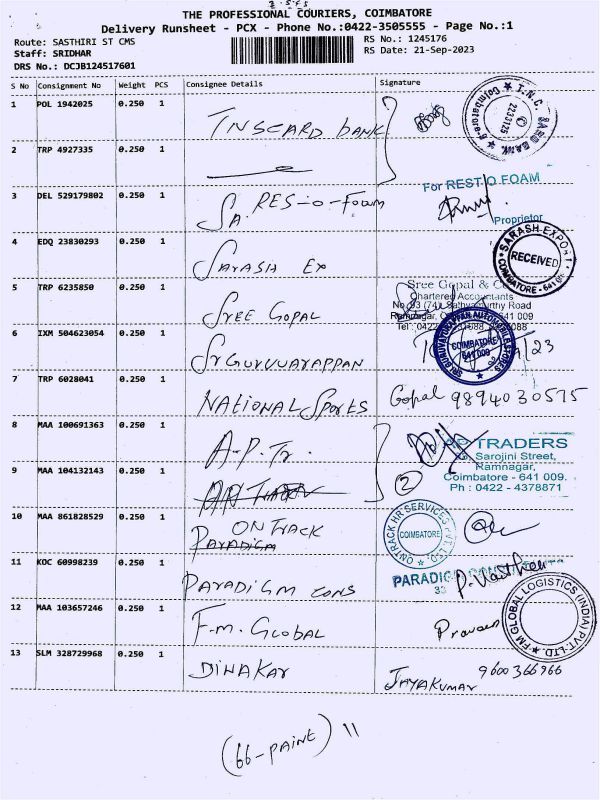 THE PROFESSIONAL COURIERS, COIMBATORE
Delivery Runsheet - PCX - Phone No.:0422-3505555 - Page No.:1
Route: SASTHIRI ST CMS
RS No.: 1245176
Staff: SRIDHAR
RS Date: 21-Sep-2023
DRS No.: DCJB124517601
S No Consignment No Weight PCS Consignee Details Signature
1 POL 1942025 0.250 1 bank
2 TRP 4927335 0.250 1
3 DEL 529179802 0.250 1 SA. RES-o-Foam For REST O FOAM
Proprietor
4 EDQ 23830293 0.250 1 Sarash Ex SARASH EXPORT RECEIVED COIMBATORE - 641
5 TRP 6235850 0.250 1 SREE GOPAL Sree Gopal &
Chartered Accountants
6 IXM 504623054 0.250 1 Sr GURUVAYARAPPAN COIMBATORE 641 009
7 TRP 6028041 0.250 1 NATIONAL Sports Gopal 9894030575
8 MAA 100691363 0.250 1 A.P. Tr. TRADERS
Sarojini Street,
Ramnagar,
Coimbatore - 641 009.
Ph : 0422 - 4378871
9 MAA 104132143 0.250 1 2
10 MAA 861828529 0.250 1 ON TRACK ONTRACK HR SERVICES PVT. LTD. COIMBATORE
PARADIGM
11 KOC 60998239 0.250 1 PARADIGM CONS
12 MAA 103657246 0.250 1 F.M. GLOBAL Praveen FM GLOBAL LOGISTICS (INDIA) PVT. LTD.
13 SLM 328729968 0.250 1 DINAKAR JAYAKUMAR 9600366966
(66-PAINT) 11